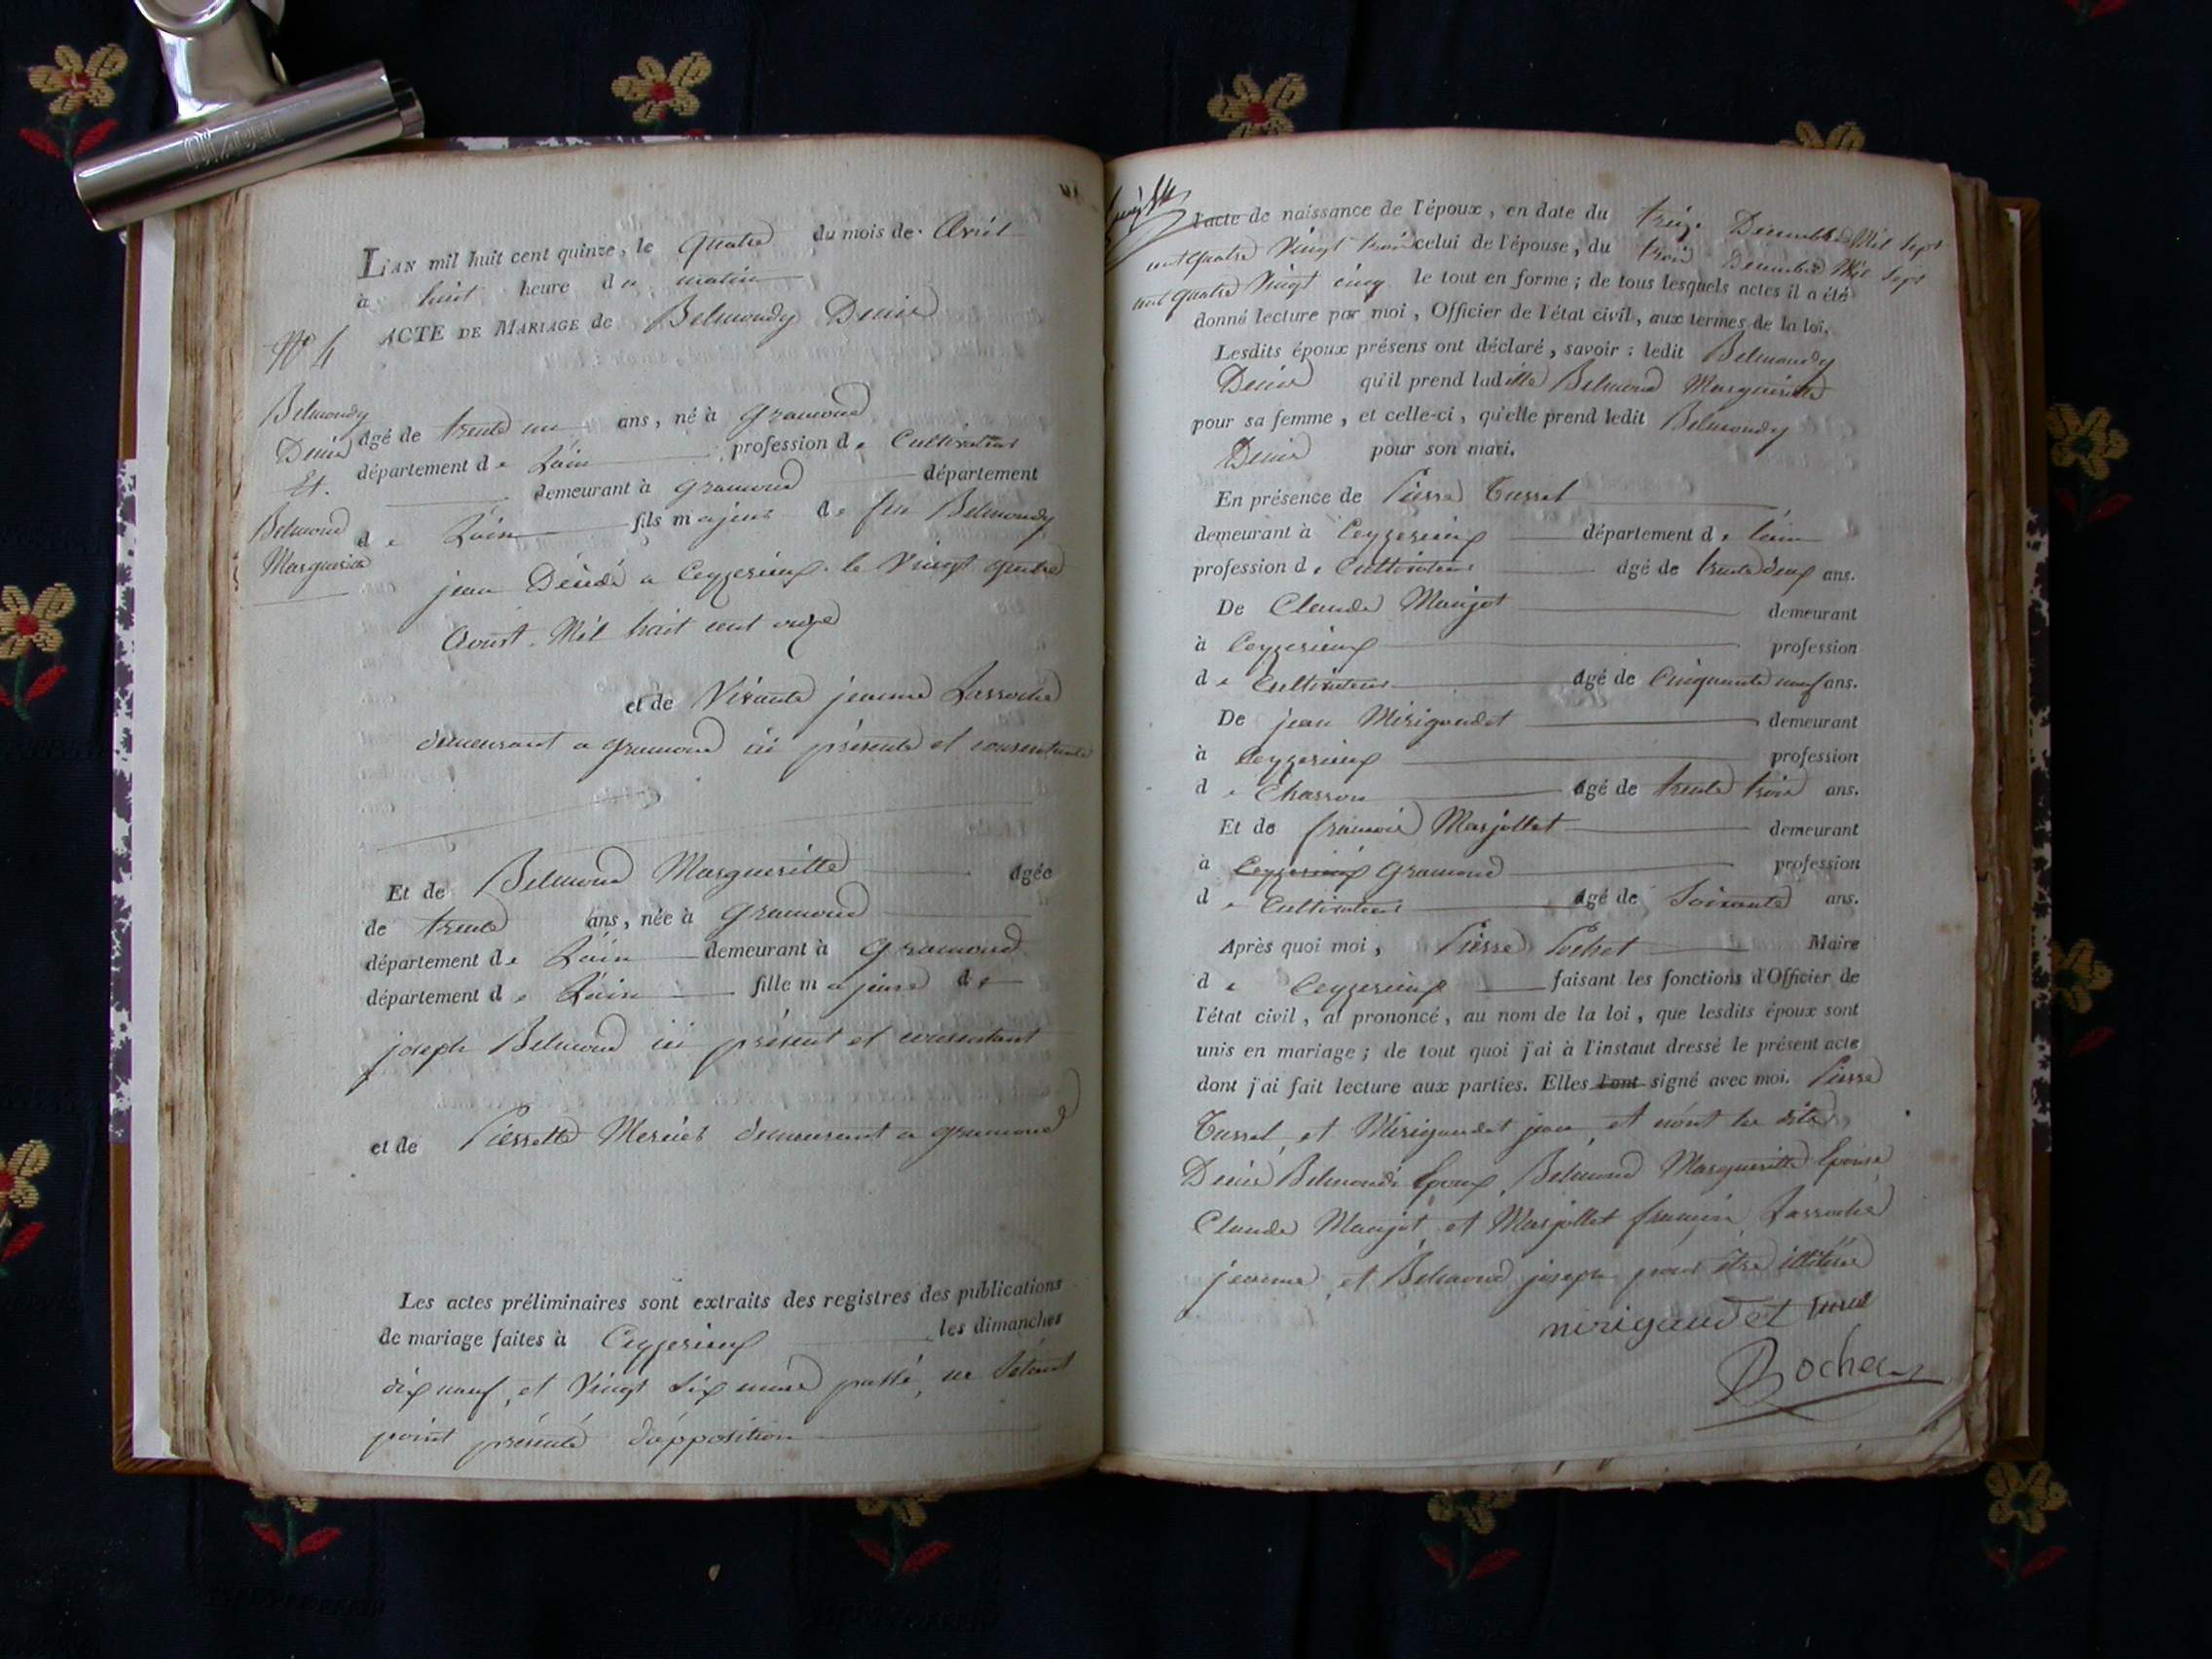 L'AN mil huit cent quinze, le quatre du mois de Avril
à huit heure du matin
N° 4
ACTE DE MARIAGE de Belmondy Denis
Belmondy
Denis
Et.
Belmond
Marguerite
âgé de trente un ans, né à gramond
département de Láin profession de Cultivateur
demeurant à gramond département
de Láin fils majeur de feu Belmondy
jean Décédé a Ceyzerieux le Vingt quatre
Aoust. Mil huit cent onze
et de Vivante jeanne Larroche
demeurant a gramond ici présente et consentante
Et de Belmond Margueritte âgée
de trente ans, née à gramond
département de Láin demeurant à gramond
département de Láin fille majeure de
joseph Belmond ici présent et consentant
et de Pierrette Mercier demeurant a gramond
Les actes préliminaires sont extraits des registres des publications
de mariage faites à Ceyzerieux les dimanches
dix neuf, et Vingt six mars passé, ne sétant
point présenté dópposition
l'acte de naissance de l'époux, en date du treize Decembre Mil sept
cent quatre Vingt trois celui de l'épouse, du trois Decembre Mil sept
cent quatre Vingt cinq le tout en forme ; de tous lesquels actes il a été
donné lecture par moi, Officier de l'état civil, aux termes de la loi.
Lesdits époux présens ont déclaré, savoir : ledit Belmondy
Denis qu'il prend laditte Belmond Margueritte
pour sa femme, et celle-ci, qu'elle prend ledit Belmondy
Denis pour son mari.
En présence de Pierre Tussel
demeurant à Ceyzerieux département de Láin
profession de Cultivateur âgé de trente deux ans.
De Claude Manjot demeurant
à Ceyzerieux profession
de Cultivateur âgé de Cinquante neuf ans.
De jean Mirigaudet demeurant
à Ceyzerieux profession
de Charron âgé de trente trois ans.
Et de francois Marjollet demeurant
à Ceyzerieux gramond profession
de Cultivateur âgé de Soixante ans.
Après quoi moi, Pierre Maire
de Ceyzerieux faisant les fonctions d'Officier de
l'état civil, ai prononcé, au nom de la loi, que lesdits époux sont
unis en mariage ; de tout quoi j'ai à l'instant dressé le présent acte
dont j'ai fait lecture aux parties. Elles l'ont signé avec moi. Pierre
Tussel, et Mirigaudet jean, et nónt les dits
Denis Belmondi Epoux, Belmond Margueritte Epouse,
Claude Manjot, et Marjollet francois, Larroche
jeanne, et Belmond joseph pour être illitéré
mirigaudet tussel